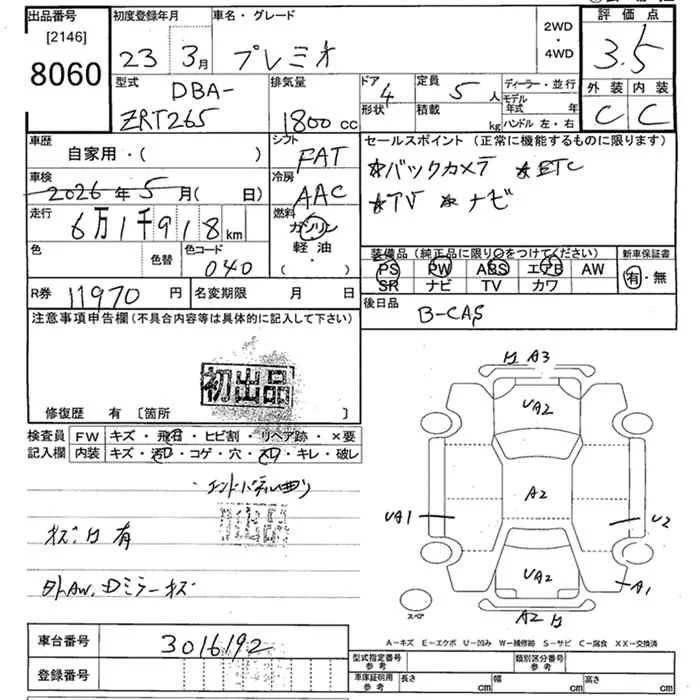 出品番号 初度登録年月 車名・グレード 2WD・4WD 評価点
[2146] 8060 23 3月 プレミオ 3.5
型式 DBA-ZRT265 排気量 1800cc ドア 4 形状 定員 5人 積載 kg ディーラー・並行 モデル年式 年 ハンドル 左・右 外装 C 内装 C
車歴 自家用・( ) シフト FAT セールスポイント(正常に機能するものに限ります)
車検 2026年5月( 日) 冷房 AAC *バックカメラ *ETC
走行 6万1千918km 燃料 ガソリン 軽油 ・( ) *TV *ナビ
色 色替 色コード 040 装備品(純正品に限り○をつけてください) 新車保証書
PS PW ABS エアB AW 有・無
SR ナビ TV カワ
R券 11970円 名変期限 月 日 後日品 B-CAS
注意事項申告欄(不具合内容等は具体的に記入して下さい)
初出品
修復歴 有 [箇所 ]
検査員記入欄 FW キズ・飛石・ヒビ割・リペア跡・×要
内装 キズ・汚れ・コゲ・穴・スレ・キレ・破レ
キズ 有
外AW、Dミラーキズ
A3
UA2
A2
UA1 U2
UA2
A1
A2
スペア
A-キズ E-エクボ U-凹み W-補修跡 S-サビ C-腐食 XX-交換済
車台番号 3016192
登録番号
型式指定番号 参考 類別区分番号 参考
車庫証明用 参考 長さ cm 幅 cm 高さ cm